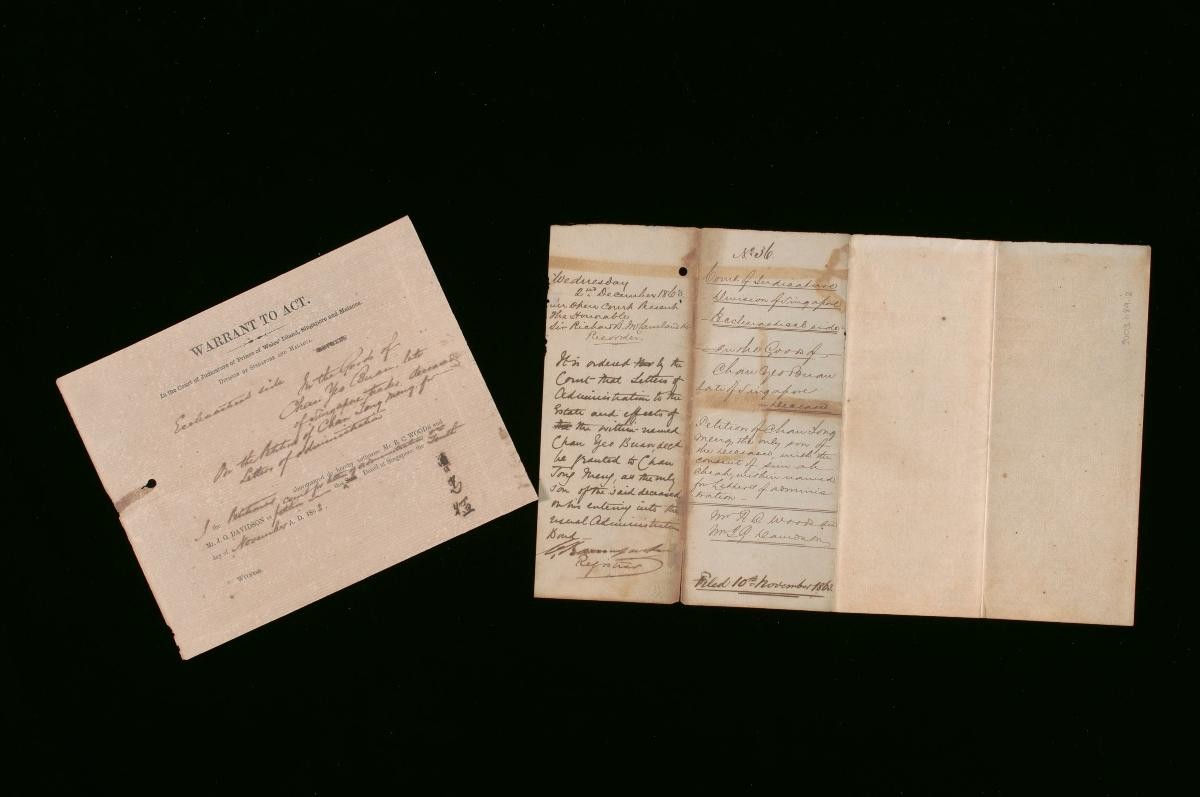 WARRANT TO ACT.
In the Court of Judicature of Prince of Wales' Island, Singapore and Malacca.
Division of Singapore and Malacca.
Ecclesiastical side In the Goods of
Chan Yeo Buan late
of Singapore deceased
On the Petition of Chan Tong Meng for
Letters of Administration
I the Petitioner
do hereby authorize Mr. R. C. WOODS and
Mr. J. G. DAVIDSON
Dated at Singapore the Tenth
day of November A. D. 186
Witness
Wednesday
2nd December 1863
in open Court Present
The Honorable
Sir Richard B. McCausland Kt
Recorder.
It is ordered by the
Court that Letters of
Administration to the
Estate and effects of
the within named
Chan Yeo Buan decd
be granted to Chan
Tong Meng, as the only
son of the said deceased
on his entering into the
usual Administration
Bond
Registrar
No. 36.
Court of Judicature
Division of Singapore
Ecclesiastical side
In the Goods of
Chan Yeo Buan
late of Singapore
deceased
Petition of Chan Tong
Meng, the only son of
the deceased, with the
consent of
within named
for Letters of adminis
tration -
Mr R. C. Woods
Mr J. G. Davidson
Filed 10th November 1863.
2003.689.2